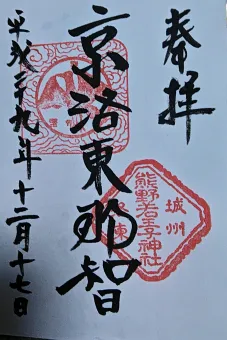 奉拝
京洛東那智
城州
熊野若王子神社
平成二十九年十二月十七日